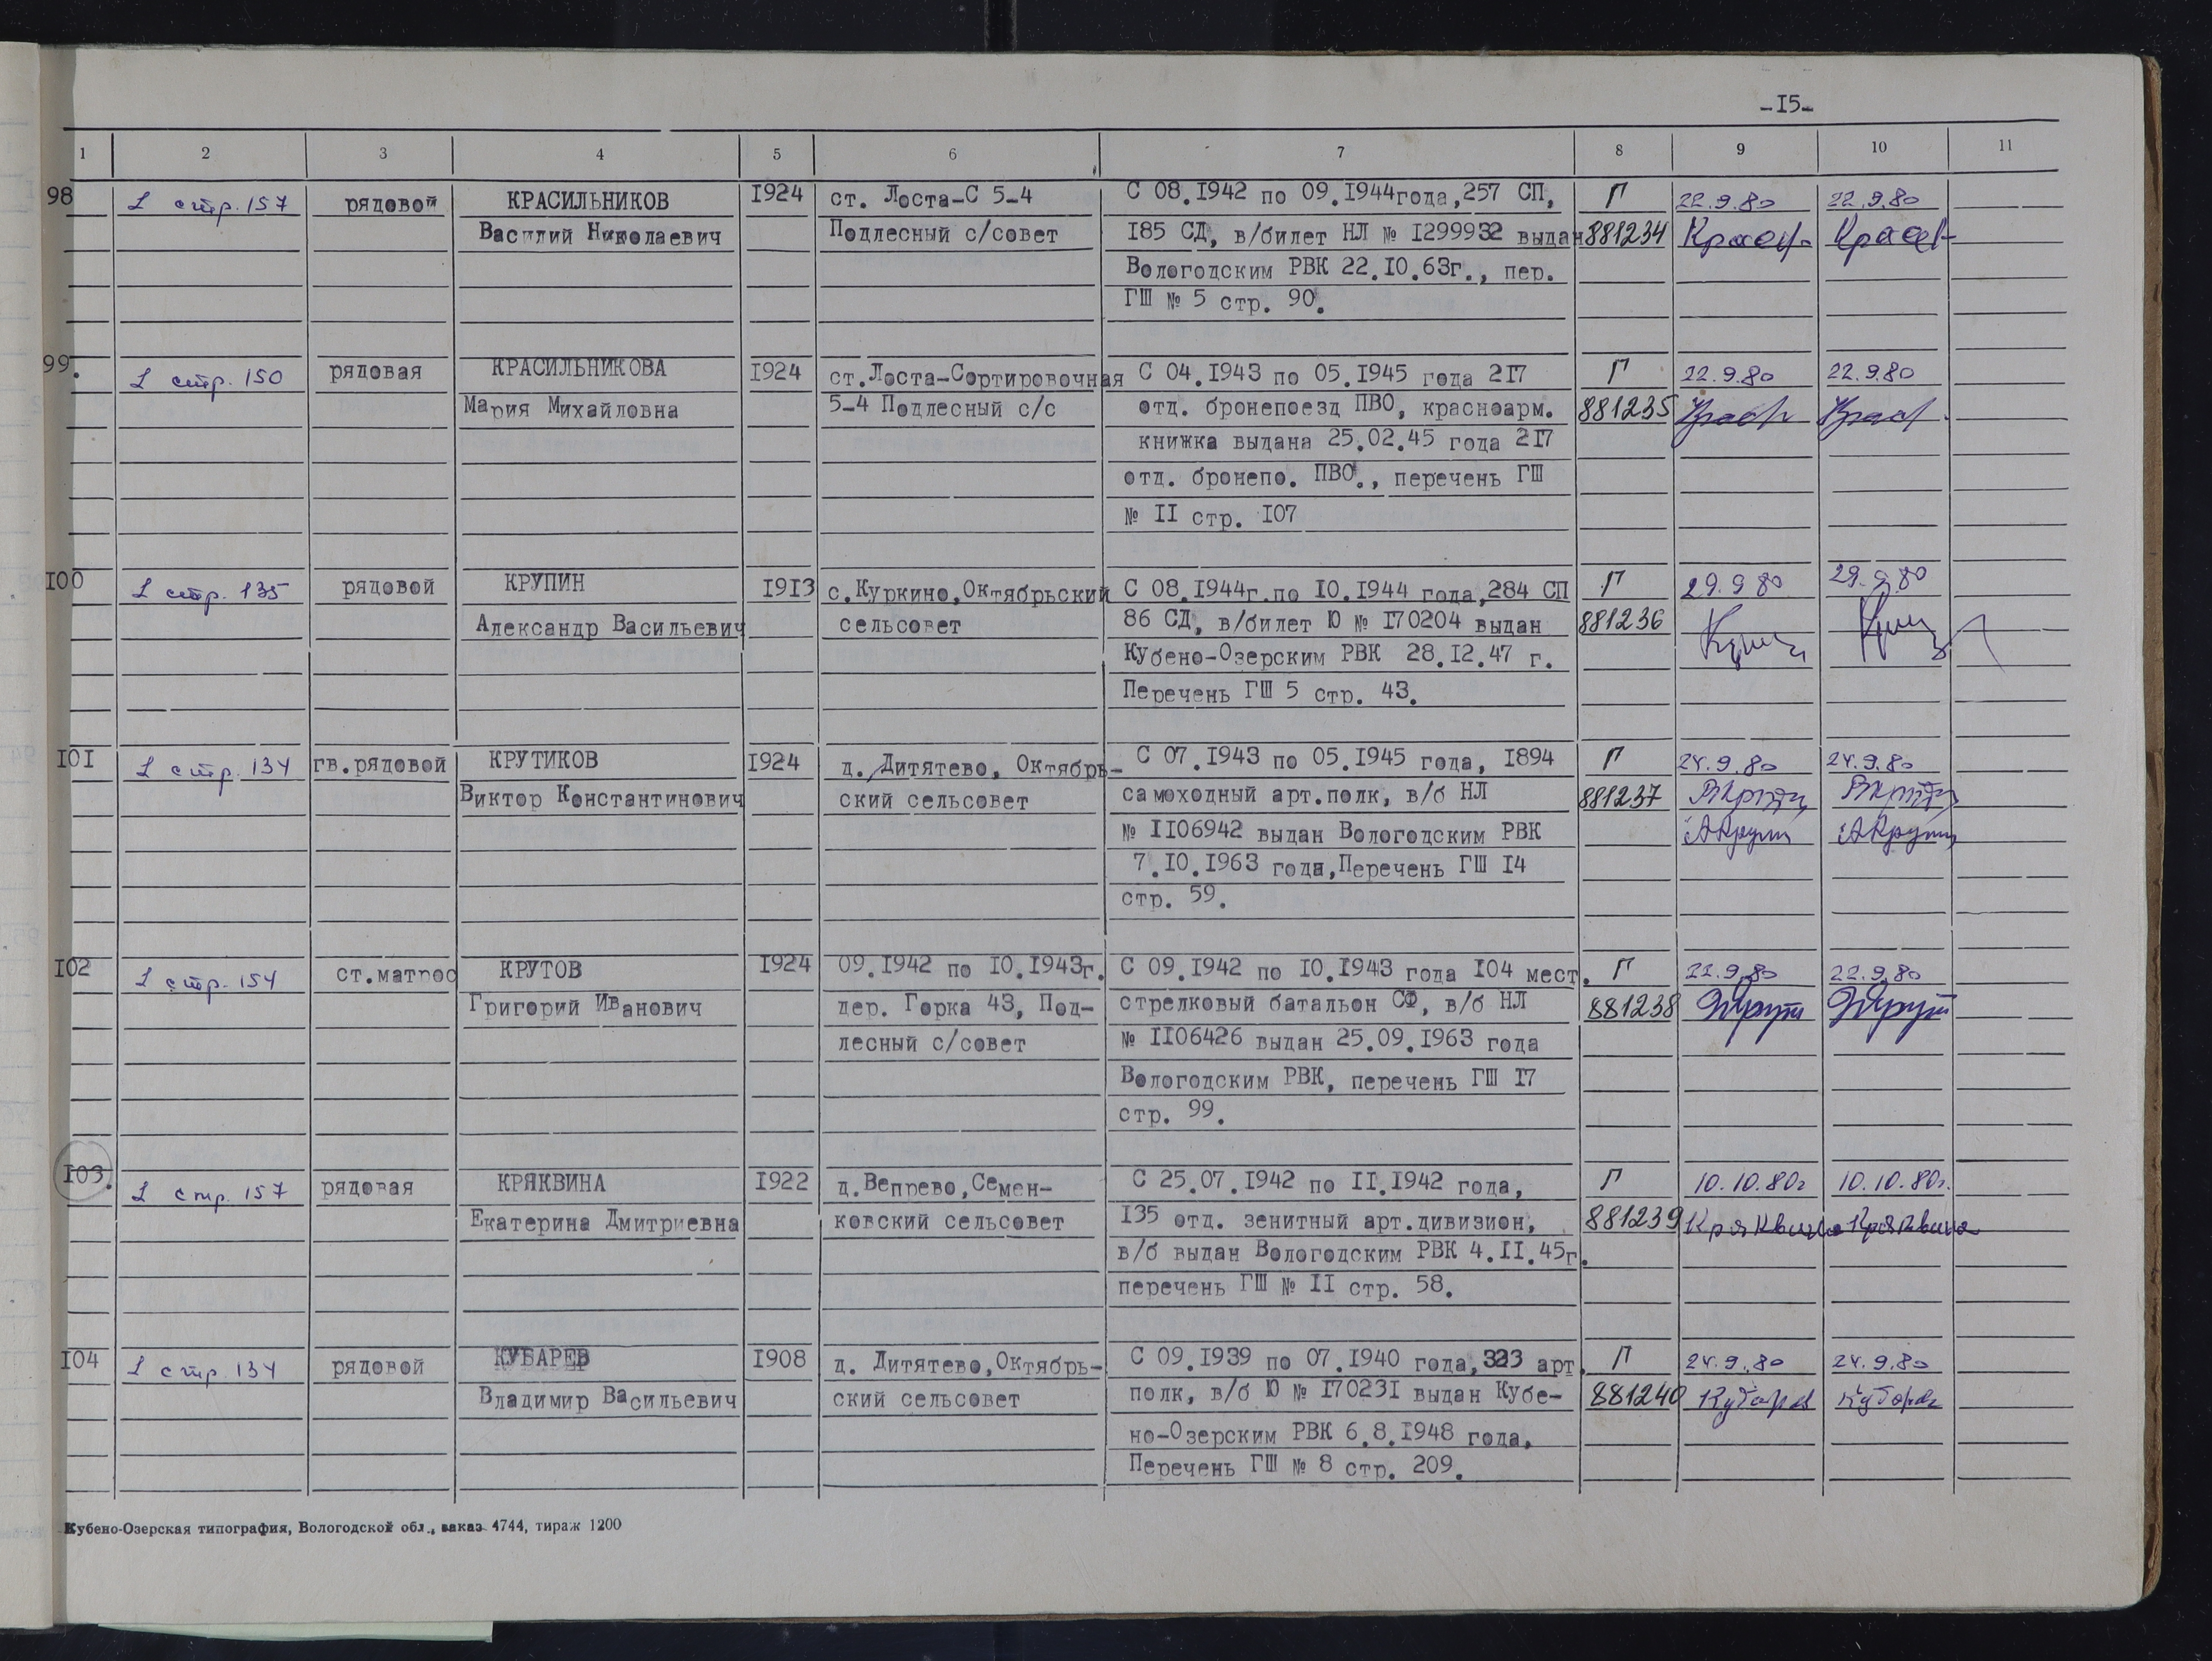 -I5-
1 2 3 4 5 6 7 8 9 10 11
98 L стр. 157 рядовой КРАСИЛЬНИКОВ I924 ст. Лоста-С 5-4 С 08.I942 по 09.I944года,257 СП, Г 22.9.80 22.9.80
Василий Николаевич Подлесный с/совет I85 СД, в/билет НЛ № I299932 выдан 881234
Вологодским РВК 22.I0.63г., пер.
ГШ № 5 стр. 90.
99. L стр. 150 рядовая КРАСИЛЬНИКОВА I924 ст.Лоста-Сортировочная С 04.I943 по 05.I945 года 2I7 Г 22.9.80 22.9.80
Мария Михайловна 5-4 Подлесный с/с отд. бронепоезд ПВО, красноарм. 881235
книжка выдана 25.02.45 года 2I7
отд. бронепо. ПВО., перечень ГШ
№ II стр. I07
I00 L стр. 135 рядовой КРУПИН I9I3 с.Куркино,Октябрьский С 08.I944г.по I0.I944 года,284 СП Г 29.9.80 29.9.80
Александр Васильевич сельсовет 86 СД, в/билет Ю № I70204 выдан 881236
Кубено-Озерским РВК 28.I2.47 г.
Перечень ГШ 5 стр. 43.
I0I L стр. 134 гв.рядовой КРУТИКОВ I924 д. Дитятево, Октябрь- С 07.I943 по 05.I945 года, I894 Г 24.9.80 24.9.80
Виктор Константинович ский сельсовет самоходный арт.полк, в/б НЛ 881237
№ II06942 выдан Вологодским РВК
7.I0.I963 года,Перечень ГШ I4
стр. 59.
I02 L стр. 154 ст.матрос КРУТОВ I924 09.I942 по I0.I943г. С 09.I942 по I0.I943 года I04 мест. Г 22.9.80 22.9.80
Григорий Иванович дер. Горка 43, Под- стрелковый батальон СФ, в/б НЛ 881238
лесный с/совет № II06426 выдан 25.09.I963 года
Вологодским РВК, перечень ГШ I7
стр. 99.
I03. L стр. 157 рядовая КРЯКВИНА I922 д.Вепрево,Семен- С 25.07.I942 по II.I942 года, Г 10.10.80г 10.10.80г.
Екатерина Дмитриевна ковский сельсовет I35 отд. зенитный арт.дивизион, 881239 Кряквина Кряквина
в/б выдан Вологодским РВК 4.II.45г.
перечень ГШ № II стр. 58.
I04 L стр. 134 рядовой КУБАРЕВ I908 д. Дитятево,Октябрь- С 09.I939 по 07.I940 года,323 арт. Г 24.9.80 24.9.80
Владимир Васильевич ский сельсовет полк, в/б Ю № I7023I выдан Кубе- 881240 Кубарев Кубарев
но-Озерским РВК 6.8.I948 года,
Перечень ГШ № 8 стр. 209.
Кубено-Озерская типография, Вологодской обл., заказ 4744, тираж 1200